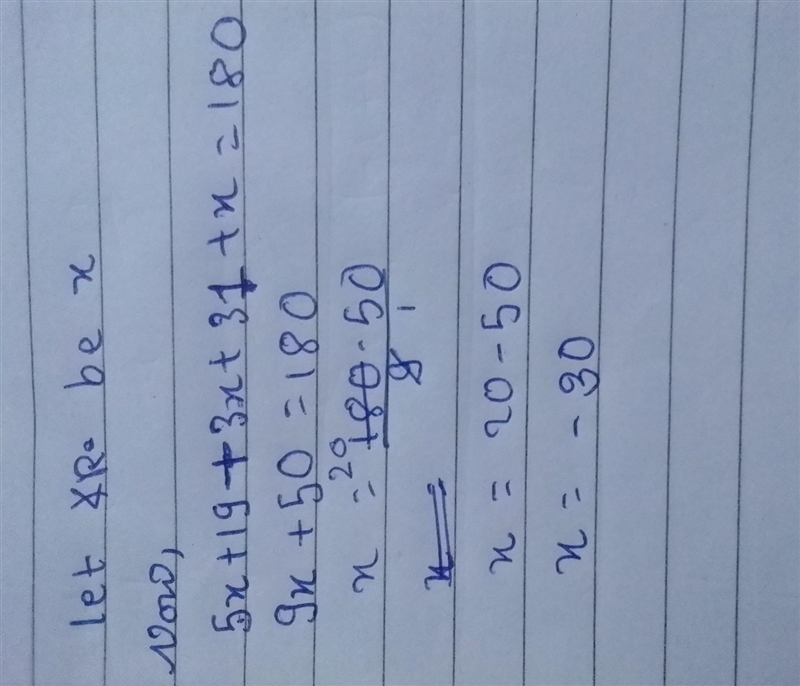 let ∡R. be x
Now,
5x + 19 + 3x + 31 + x = 180
9x + 50 = 180
x = 20 180 - 50
9 1
x =
x = 20 - 50
x = - 30